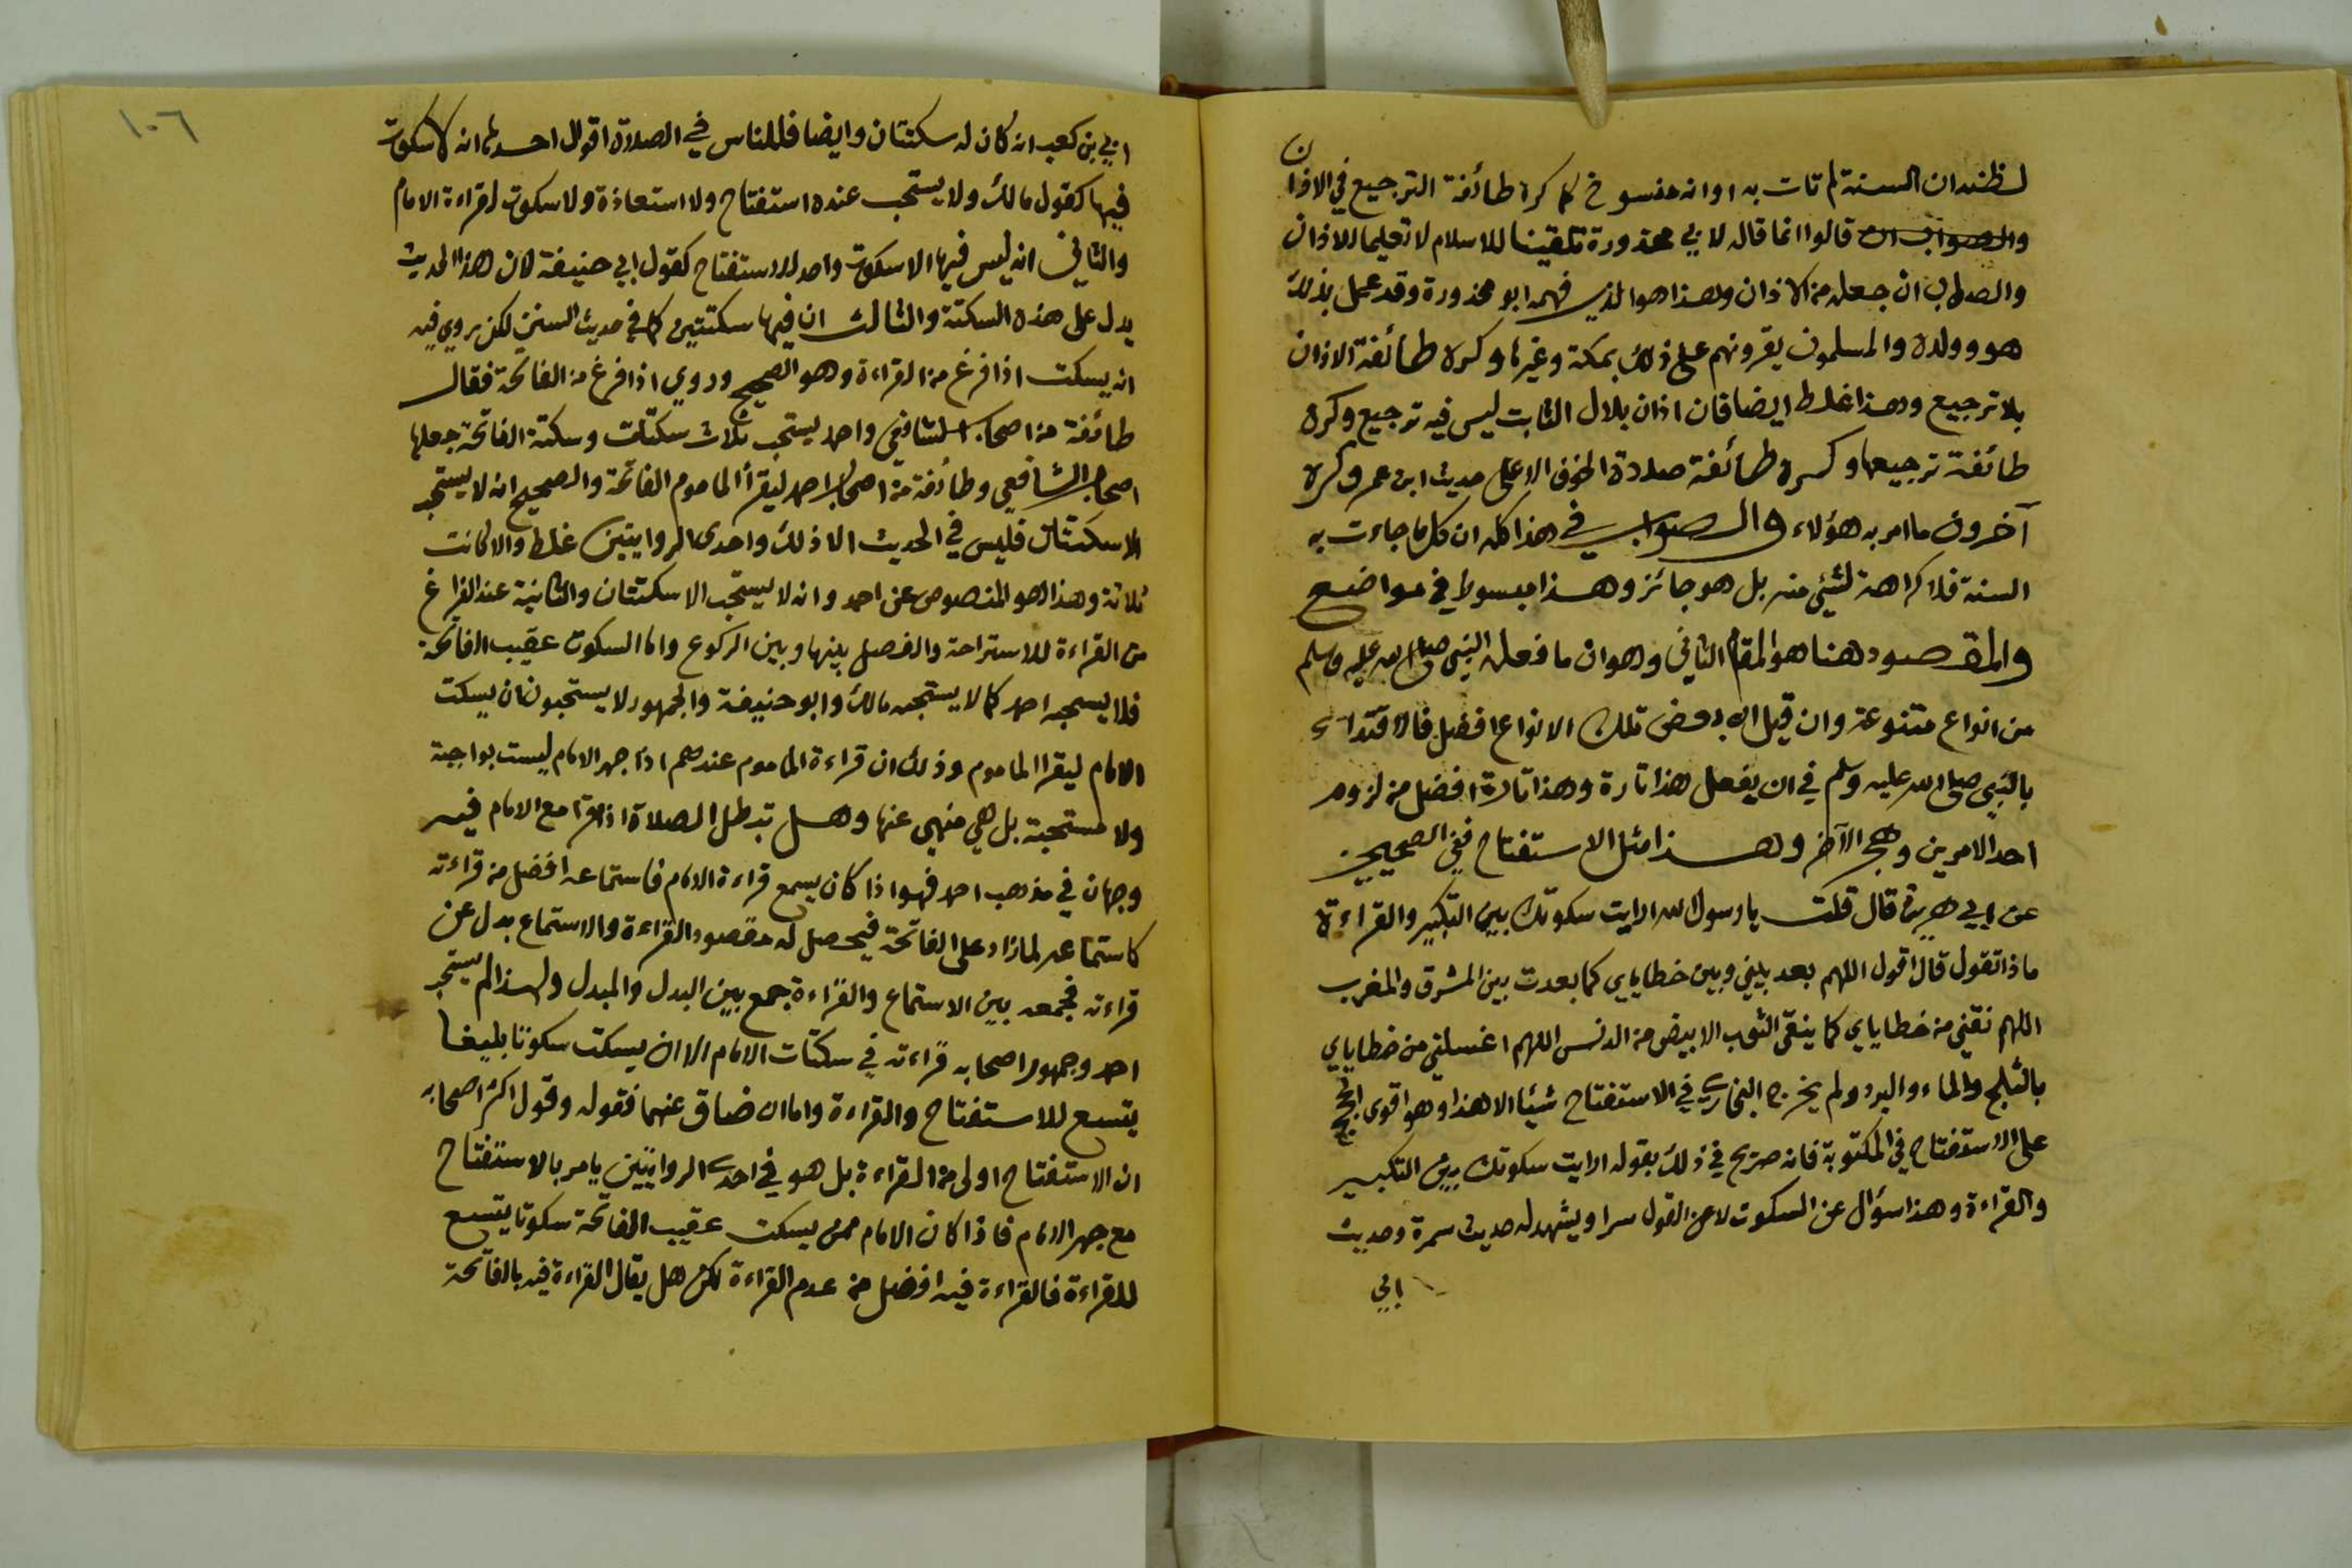 لظنه ان السنة لم تات به او انه منسوخ كما كره طائفة الترجيع في الاذان
والصواب ان قالوا انما قاله لابي محذورة تلقينا للاسلام لا تعليما للاذان
والصواب ان جعله من الاذان وهذا هو الذي فهمه ابو محذورة وقد عمل بذلك
هو وولده والمسلمون يقرونهم على ذلك بمكة وغيرها وكره طائفة الاذان
بلا ترجيع وهذا غلط ايضا فان اذان بلال الثابت ليس فيه ترجيع وكره
طائفة ترجيعها وكره طائفة صلاة الخوف الا على حديث ابن عمر وكره
آخرون ما امر به هؤلاء والصواب في هذا كله ان كل ما جاءت به
السنة فلا كراهة لشيئ منه بل هو جائز وهذا مبسوط في مواضع
والمقصود هنا هو المقام الثاني وهو ان ما فعله النبي صلى الله عليه وسلم
من انواع متنوعة وان قيل ان بعض تلك الانواع افضل فالاقتداء
بالنبي صلى الله عليه وسلم في ان يفعل هذا تارة وهذا تارة افضل من لزوم
احد الامرين وهجر الآخر وهذا مثل الاستفتاح ففي الصحيحين
عن ابي هريرة قال قلت يا رسول الله ارايت سكوتك بين التكبير والقراءة
ماذا تقول قال اقول اللهم بعد بيني وبين خطاياي كما بعدت بين المشرق والمغرب
اللهم نقني من خطاياي كما ينقى الثوب الابيض من الدنس اللهم اغسلني من خطاياي
بالثلج والماء والبرد ولم يخرج البخاري في الاستفتاح شيئا الا هذا وهو اقوى الحجج
على الاستفتاح في المكتوبة فانه صريح في ذلك بقوله ارايت سكوتك بين التكبير
والقراءة وهذا سؤال عن السكوت لا عن القول سرا ويشهد له حديث سمرة وحديث
ابي
١٠٦
ابي بن كعب انه كان له سكتتان وايضا فللناس في الصلاة اقوال احدها انه لا سكوت
فيها كقول مالك ولا يستحب عنده استفتاح ولا استعاذة ولا سكوت لقراءة الامام
والثاني انه ليس فيها الا سكوت واحد للاستفتاح كقول ابي حنيفة لان هذا الحديث
يدل على هذه السكتة والثالث ان فيها سكتتين كما في حديث السنن لكن روي فيه
انه يسكت اذا فرغ من القراءة وهو الصحيح وروي اذا فرغ من الفاتحة فقال
طائفة من اصحاب الشافعي واحمد يستحب ثلاث سكتات وسكتة الفاتحة جعلها
اصحاب الشافعي وطائفة من اصحاب احمد ليقرأ الماموم الفاتحة والصحيح انه لا يستحب
الا سكتتان فليس في الحديث الا ذلك واحدى الروايتين غلط والا كانت
ثلاثة وهذا هو المنصوص عن احمد وانه لا يستحب الا سكتتان والثانية عند الفراغ
من القراءة للاستراحة والفصل بينها وبين الركوع واما السكوت عقيب الفاتحة
فلا يستحبه احمد كما لا يستحبه مالك وابو حنيفة والجمهور لا يستحبون ان يسكت
الامام ليقرا الماموم وذلك ان قراءة الماموم عندهم اذا جهر الامام ليست بواجبة
ولا مستحبة بل هي منهي عنها وهل تبطل الصلاة اذا قرا مع الامام فيه
وجهان في مذهب احمد فهو اذا كان يسمع قراءة الامام فاستماعه افضل من قراءته
كاستماعه لما زاد على الفاتحة فيحصل له مقصود القراءة والاستماع بدل عن
قراءته فجمعه بين الاستماع والقراءة جمع بين البدل والمبدل ولهذا لم يستحب
احمد وجمهور اصحابه قراءته في سكتات الامام الا ان يسكت سكوتا بليغا
يتسع للاستفتاح والقراءة واما ان ضاق عنهما فقوله وقول اكثر اصحابه
ان الاستفتاح اولى من القراءة بل هو في احدى الروايتين يامر بالاستفتاح
مع جهر الامام فاذا كان الامام ممن يسكت عقيب الفاتحة سكوتا يتسع
للقراءة فالقراءة فيه افضل من عدم القراءة لكن هل يقال القراءة فيه بالفاتحة